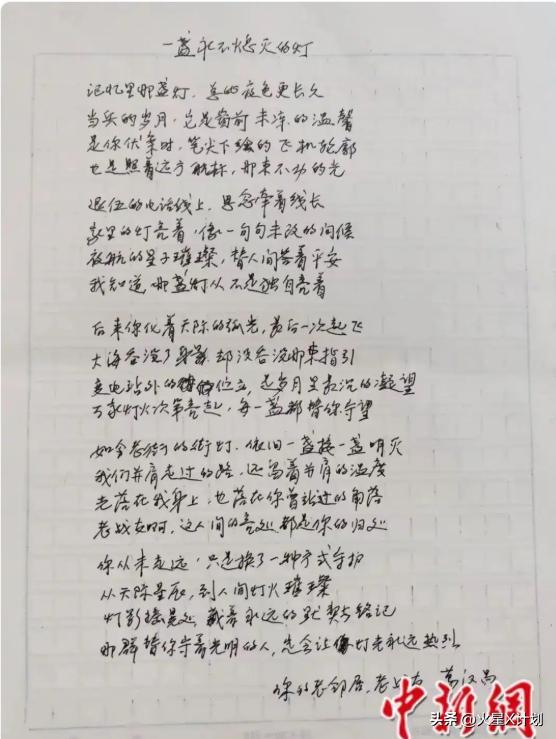 一盏永不熄灭的灯
记忆里那盏灯，总比夜色更长久
当兵的岁月，它是窗前未冻的温馨
是你伏案时，笔尖下绘的飞机轮廓
也是照着远方航标，那束不功的光
退伍的电话线上，思念牵着线长
家里的灯亮着，像一句句未改的问候
夜航的星子璀璨，替人间答着平安
我知道，那盏灯从不是独自亮着
后来你化着天际的弧光，最后一次起飞
大海吞没了身影 却没吞没那束指引
变电站外的 伫立，是岁月里最沉的凝望
万家灯火次第亮起，每一盏都替你守望
如今老街的街灯，依旧一盏接一盏明灭
我们并肩走过的路，还留着并肩的温度
光落在我身上，也落在你曾站过的角落
老战友啊，这人间的亮处 都是你的归处
你从未走远，只是换了一种方式守护
从天际星辰，到人间灯火璀璨
灯影摇曳处 载着永远的默契与铭记
那群替你守着光明的人，总会让灯光永远热烈
你的老邻居、老战友
中新网
头条 @火星X计划